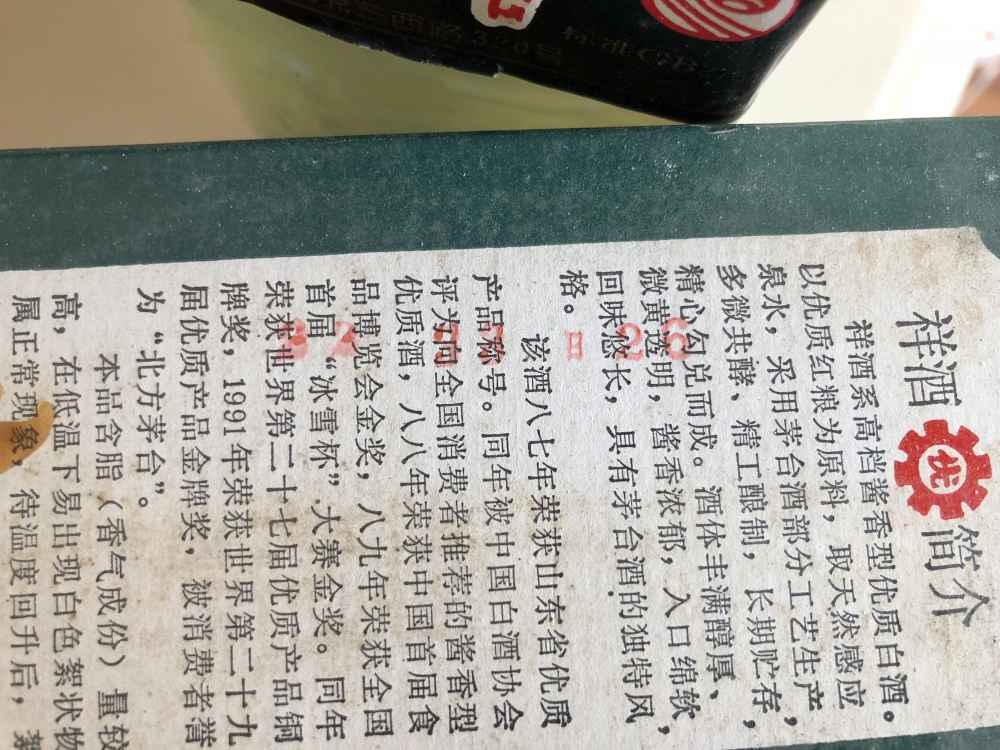 祥酒 优 简介
祥酒系高档酱香型优质白酒。
以优质红粮为原料，取天然感应
泉水，采用茅台酒部分工艺生产，
多微共酵、精工酿制，长期贮存，
精心勾兑而成。酒体丰满醇厚、
微黄透明，酱香浓郁，入口绵软，
回味悠长，具有茅台酒的独特风
格。
该酒八七年荣获山东省优质
产品称号。同年被中国白酒协会
评为向全国消费者推荐的酱香型
优质酒，八八年荣获中国首届食
品博览会金奖，八九年荣获全国
首届“冰雪杯”大赛金奖。同年
荣获世界第二十七届优质产品铜
牌奖，1991年荣获世界第二十九
届优质产品金牌奖，被消费者誉
为“北方茅台”。
本品含脂（香气成份）量较
高，在低温下易出现白色絮状物
属正常现象，待温度回升后，